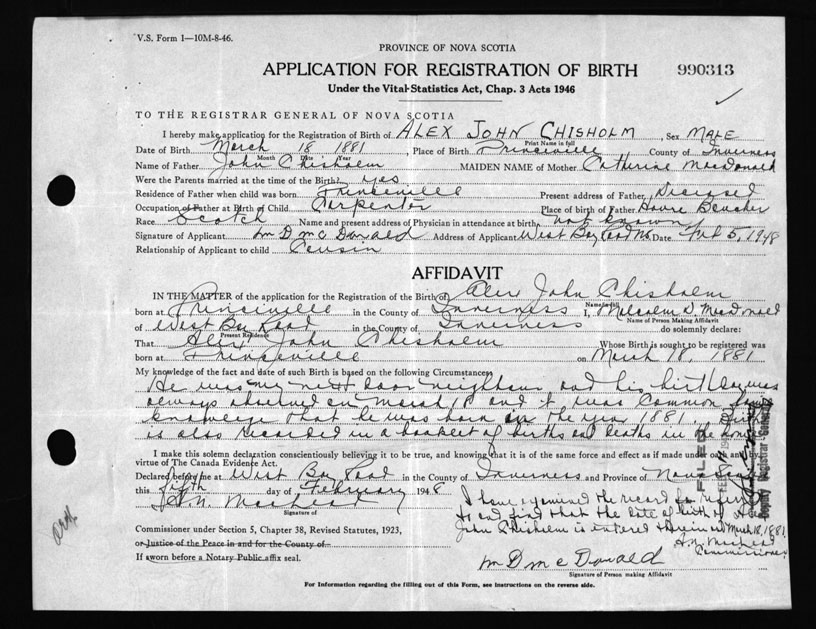 V.S. Form 1—10M-8-46.
PROVINCE OF NOVA SCOTIA
APPLICATION FOR REGISTRATION OF BIRTH 990313
Under the Vital Statistics Act, Chap. 3 Acts 1946
TO THE REGISTRAR GENERAL OF NOVA SCOTIA
I hereby make application for the Registration of Birth of ALEX JOHN CHISHOLM, Sex MALE
Print Name in full
Date of Birth March 18 1881, Place of Birth Princeville County of Inverness
Month Date Year
Name of Father John Chisholm MAIDEN NAME of Mother Catherine MacDonald
Were the Parents married at the time of the Birth yes
Residence of Father when child was born Princeville Present address of Father Deceased
Occupation of Father at Birth of Child Carpenter Place of birth of Father
Race Scotch Name and present address of Physician in attendance at birth, not known
Signature of Applicant M D McDonald Address of Applicant West Bay Road N.S. Date Feb 5, 1948
Relationship of Applicant to child Cousin
AFFIDAVIT
IN THE MATTER of the application for the Registration of the Birth of Alex John Chisholm
Name in full
born at Princeville in the County of Inverness I, Malcolm D. MacDonald
Name of Person Making Affidavit
of West Bay Road in the County of Inverness do solemnly declare:
Present Residence
That Alex John Chisholm Whose Birth is sought to be registered was
born at Princeville on March 18, 1881
My knowledge of the fact and date of such Birth is based on the following Circumstances
He was my next door neighbour and his birthday was
always observed on March 18 and it was common
knowledge that he was born in the year 1881.
is also recorded in a booklet of births and deaths in the home
I make this solemn declaration conscientiously believing it to be true, and knowing that it is of the same force and effect as if made under oath and by
virtue of The Canada Evidence Act.
Declared before me at West Bay Road in the County of Inverness and Province of Nova Scotia
this fifth day of February 1948
Signature of
I have examined the record
and find that the date of birth of
John Chisholm is entered therein as March 18, 1881.
Commissioner
Commissioner under Section 5, Chapter 38, Revised Statutes, 1923,
or Justice of the Peace in and for the County of
If sworn before a Notary Public affix seal.
M D McDonald
Signature of Person making Affidavit
For Information regarding the filling out of this Form, see instructions on the reverse side.
FILED
Deputy Registrar General